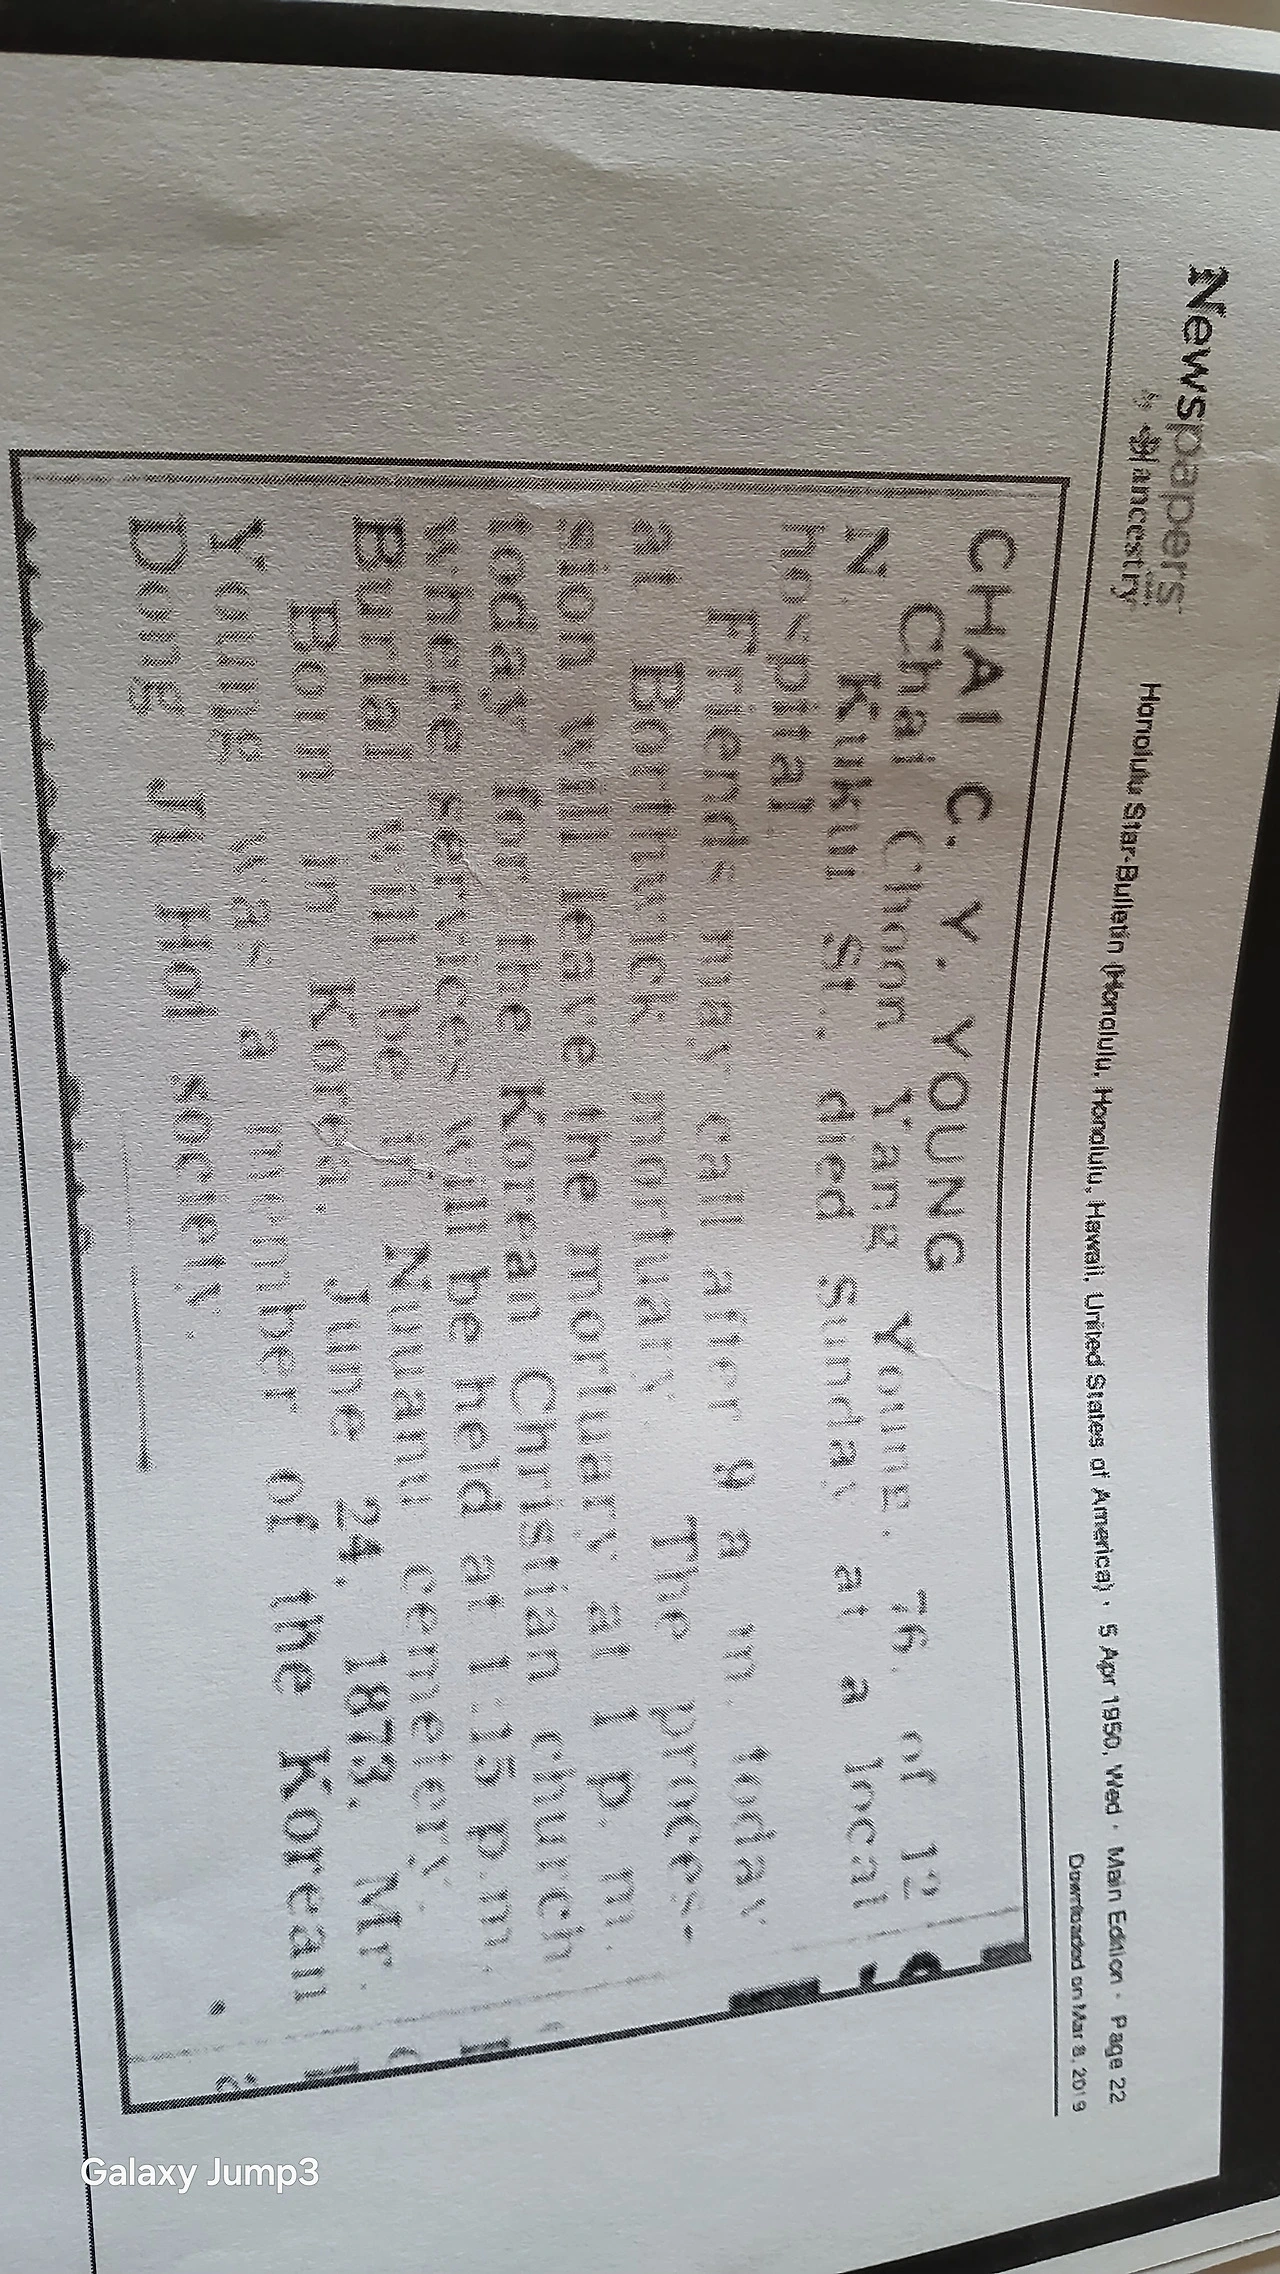 Newspapers
by ancestry
Honolulu Star-Bulletin (Honolulu, Honolulu, Hawaii, United States of America) · 5 Apr 1950, Wed · Main Edition · Page 22
Downloaded on Mar 8, 2019
CHAI C. Y. YOUNG
Chai Choon Yang Young, 76, of 12
N. Kukui St., died Sunday at a local
hospital.
Friends may call after 9 a. m. today
at Borthwick mortuary. The proces-
sion will leave the mortuary at 1 p. m.
today for the Korean Christian church
where services will be held at 1:15 p.m.
Burial will be in Nuuanu cemetery.
Born in Korea, June 24, 1873, Mr.
Young was a member of the Korean
Dong Ji Hoi society.
Galaxy Jump3